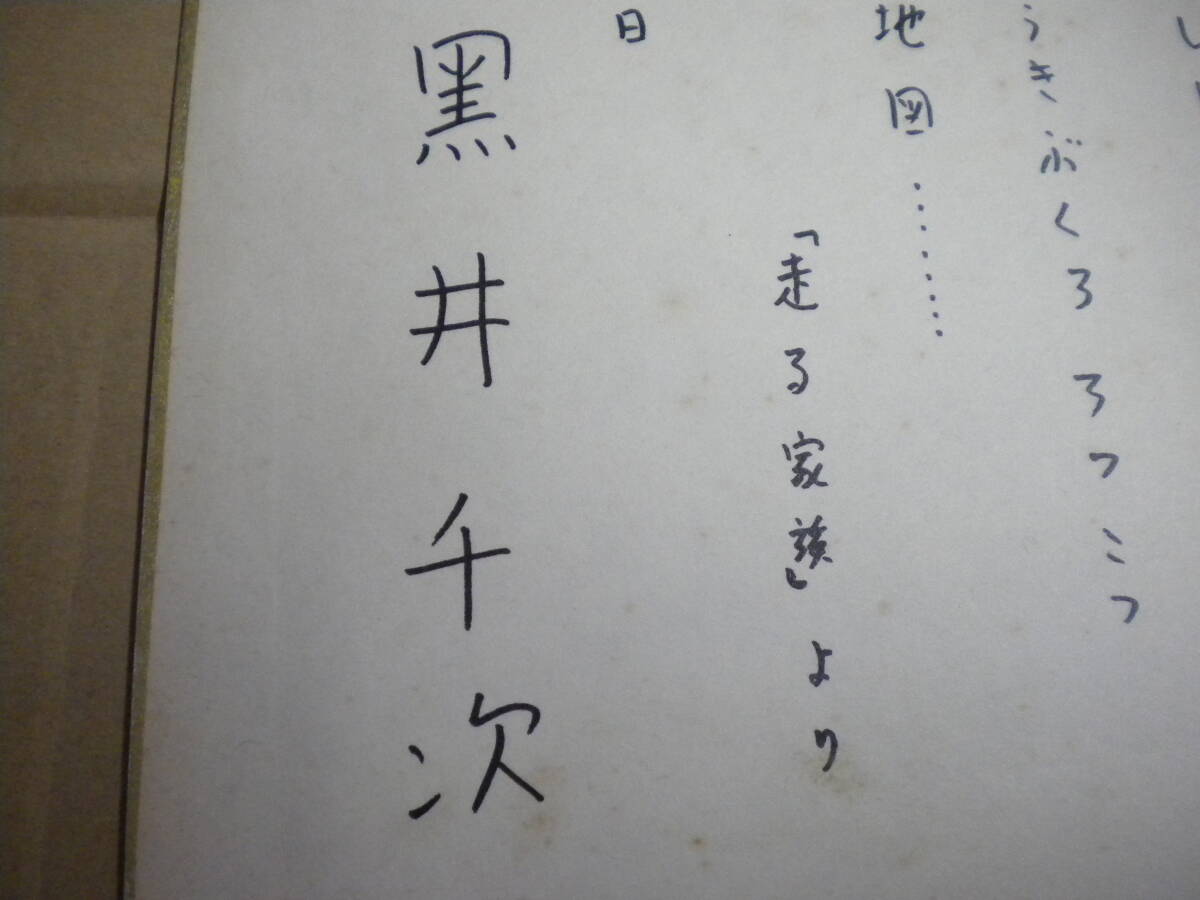 うきぶくろ ろっこつ
地図………
「走る家族」より
日
黒井千次